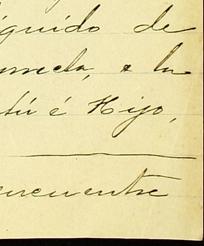 íquido de
mela, a la
tú é Hijo,
encuentre